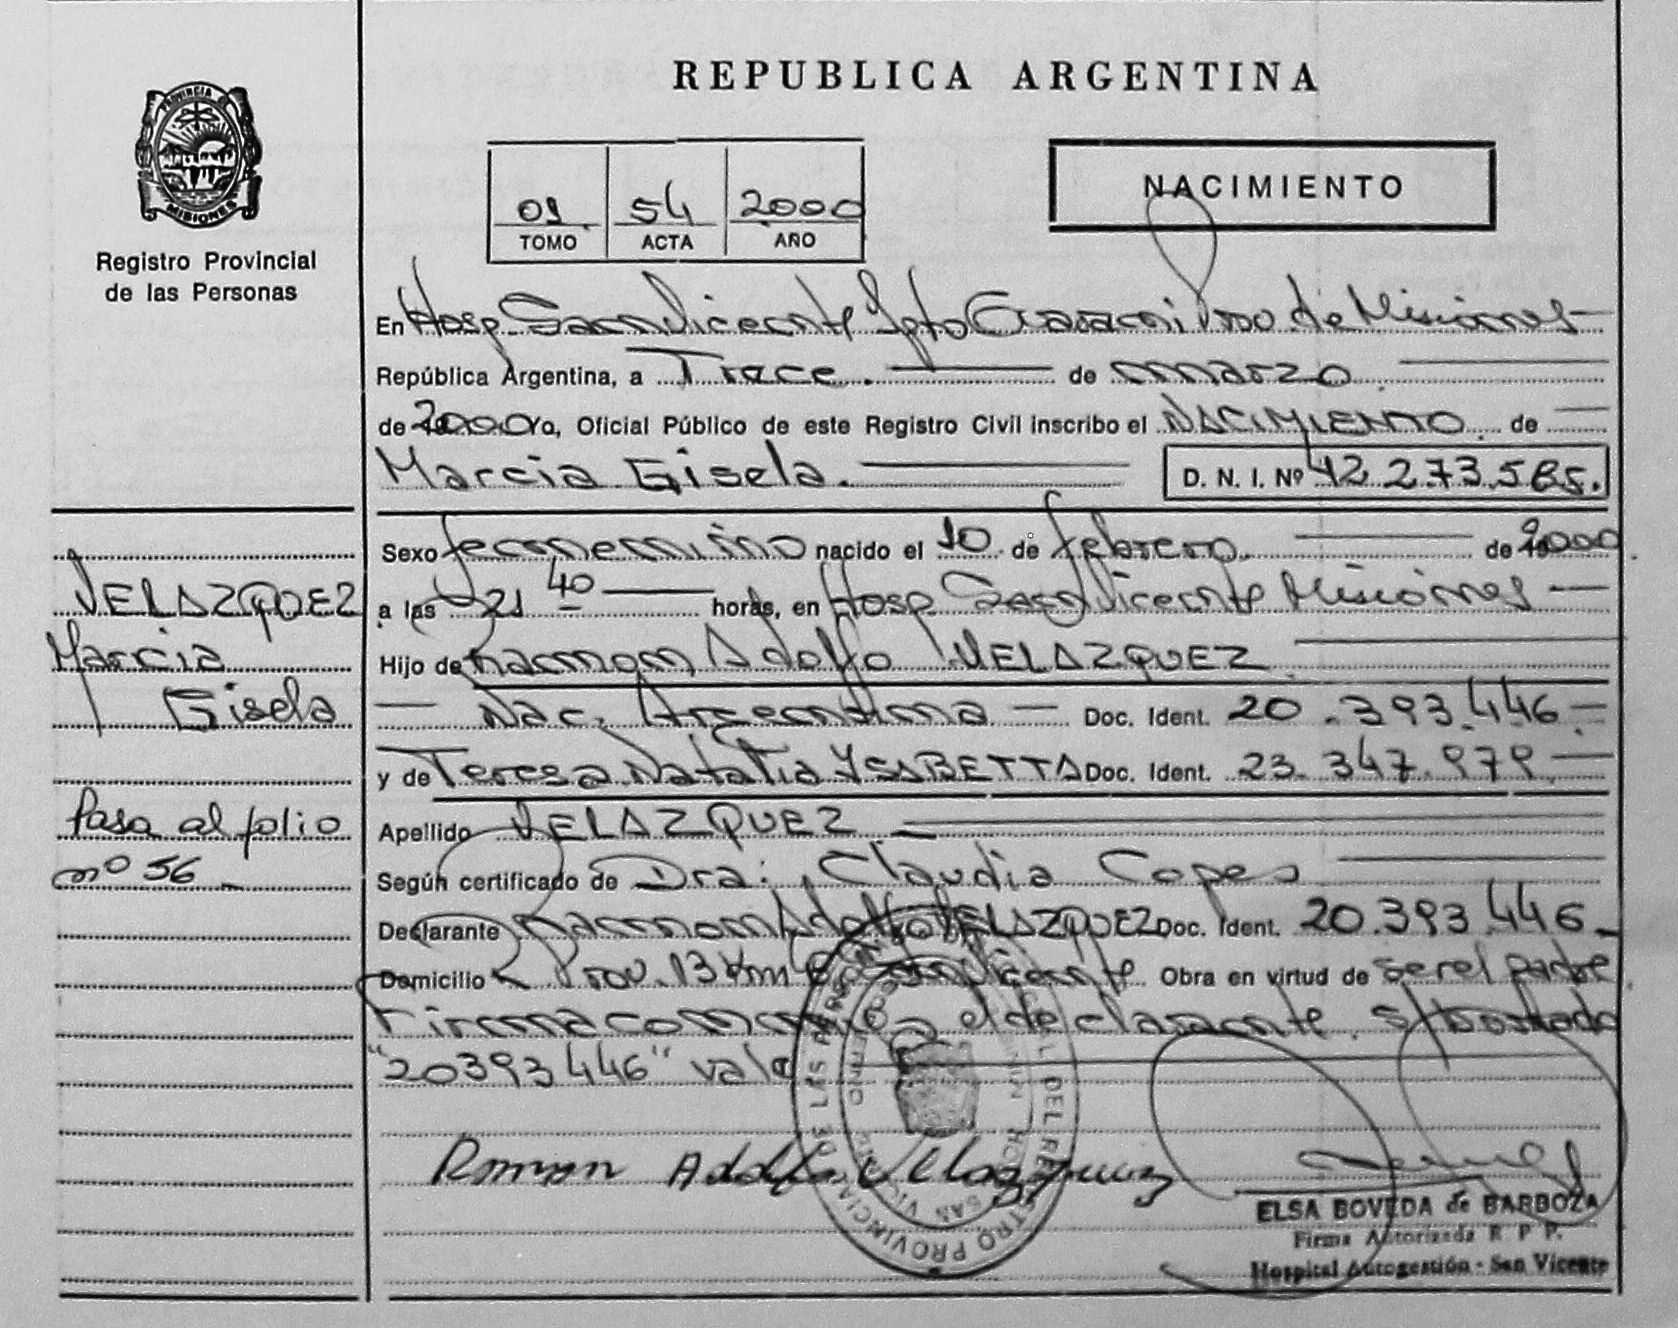 REPUBLICA ARGENTINA
PROVINCIA DE
MISIONES
Registro Provincial
de las Personas
01 54 2000
TOMO ACTA AÑO
NACIMIENTO
En Hosp San Vicente Dpto Guarani Prov de Misiones
República Argentina, a Trece de marzo
de 2000 Yo, Oficial Público de este Registro Civil inscribo el NACIMIENTO de
Marcia Gisela. D. N. I. Nº 42.273.585.
Sexo femenino nacido el 10 de febrero de 2000
a las 21 40 horas, en Hosp San Vicente Misiones
Hijo de Ramon Adolfo VELAZQUEZ
Nac. Argentina Doc. Ident. 20.393.446
y de Teresa Natalia YSABETTA Doc. Ident. 23.347.979
Apellido VELAZQUEZ
Según certificado de Dra: Claudia Copes
Declarante Ramon Adolfo VELAZQUEZ Doc. Ident. 20.393.446
Domicilio Prov. 13 km San Vicente Obra en virtud de ser el padre
Firma el declarante
"20393446" vale
VELAZQUEZ
Marcia
Gisela
Pasa al folio
nº 56
Ramon Adolfo Velazquez
ELSA BOVEDA de BARBOZA
Firma Autorizada R P P.
Hospital Autogestión - San Vicente